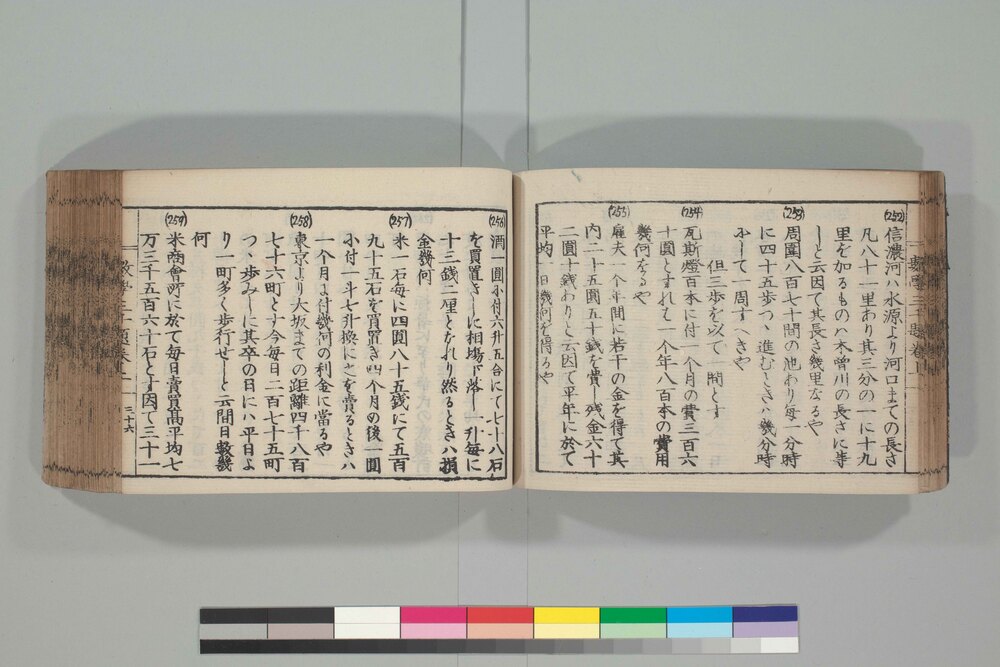 (252)
信濃河ハ水源より河口までの長さ
凡八十一里あり其三分の一に十九
里を加るものハ木曽川の長さに等
しと云因て其長さ幾里なるや
(253)
周圍八百七十間の池あり毎一分時
に四十五歩つゝ進むときハ幾分時
にして一周すへきや
但三歩を以て一間とす
(254)
瓦斯燈百本に付一个月の費三百六
十圓とすれハ一个年八百本の費用
幾何なるや
(255)
雇夫一个年間に若干の金を得て其
内二十五圓五十錢を費し残金六十
二圓十錢ありと云因て平年に於て
平均一日幾何を得るや
(256)
酒一圓に付六升五合にて七十八石
を買置きしに相場下落し一升毎に
十三錢二厘となれり然るときハ損
金幾何
(257)
米一石毎に四圓八十五錢にて五百
九十五石を買置き四个月の後一圓
に付一斗七升換に之を賣るときハ
一个月に付幾何の利金に當るや
(258)
東京より大坂までの距離四千八百
七十六町とす今毎日二百七十五町
つゝ歩みしに其卒の日にハ平日よ
り一町多く歩行せしと云間日數幾
何
(259)
米商會所に於て毎日賣買髙平均七
万三千五百六十石とす因て三十一
三十六